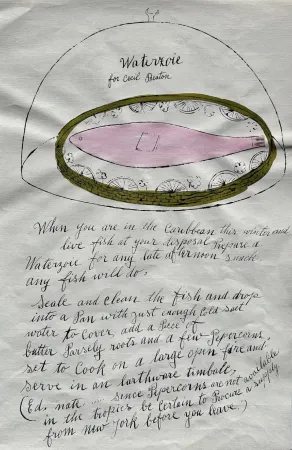 Waterzoie
for Cecil Beaton
When you are in the Caribbean this winter and
live fish at your disposal prepare a
Waterzoie for any late afternoon snack
any fish will do.
Scale and clean the fish and drop
into a Pan with just enough Cold salt
water to Cover, add a Piece of
butter Parsely roots and a few Pepercorns
set to Cook on a large open fire and
serve in an earthware timbale,
(Ed. note ..... since Pepercorns are not available
in the tropics be certain to Procure a supply
from New York before you leave.)